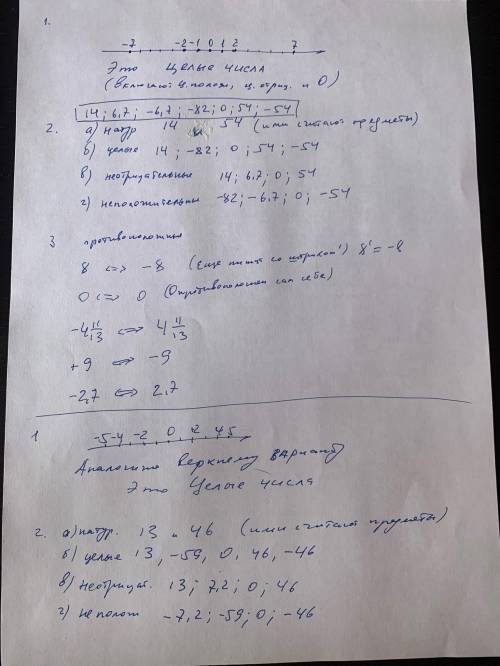 1.
-7 -2 -1 0 1 2 7
Это Целые числа
(включают ц. полож, ц. отриц. и 0)
14; 6,7; -6,7; -82; 0; 54; -54
2. а) натур 14 и 54 (ими считают предметы)
б) целые 14; -82; 0; 54; -54
в) неотрицательные 14; 6,7; 0; 54
г) неположительны -82; -6,7; 0; -54
3 противоположные
8 <=> -8 (Еще пишут со штрихом') 8' = -8
0 <=> 0 (0 противоположен сам себе)
-4 11/13 <=> 4 11/13
+9 <=> -9
-2,7 <=> 2,7
1 -5 -4 -2 0 2 4 5
Аналогично верхнему варианту
Это Целые числа
2. а) натур. 13 и 46 (ими считают предметы)
б) целые 13, -59, 0, 46, -46
в) неотрицат. 13; 7,2; 0; 46
г) не полож -7,2; -59; 0; -46